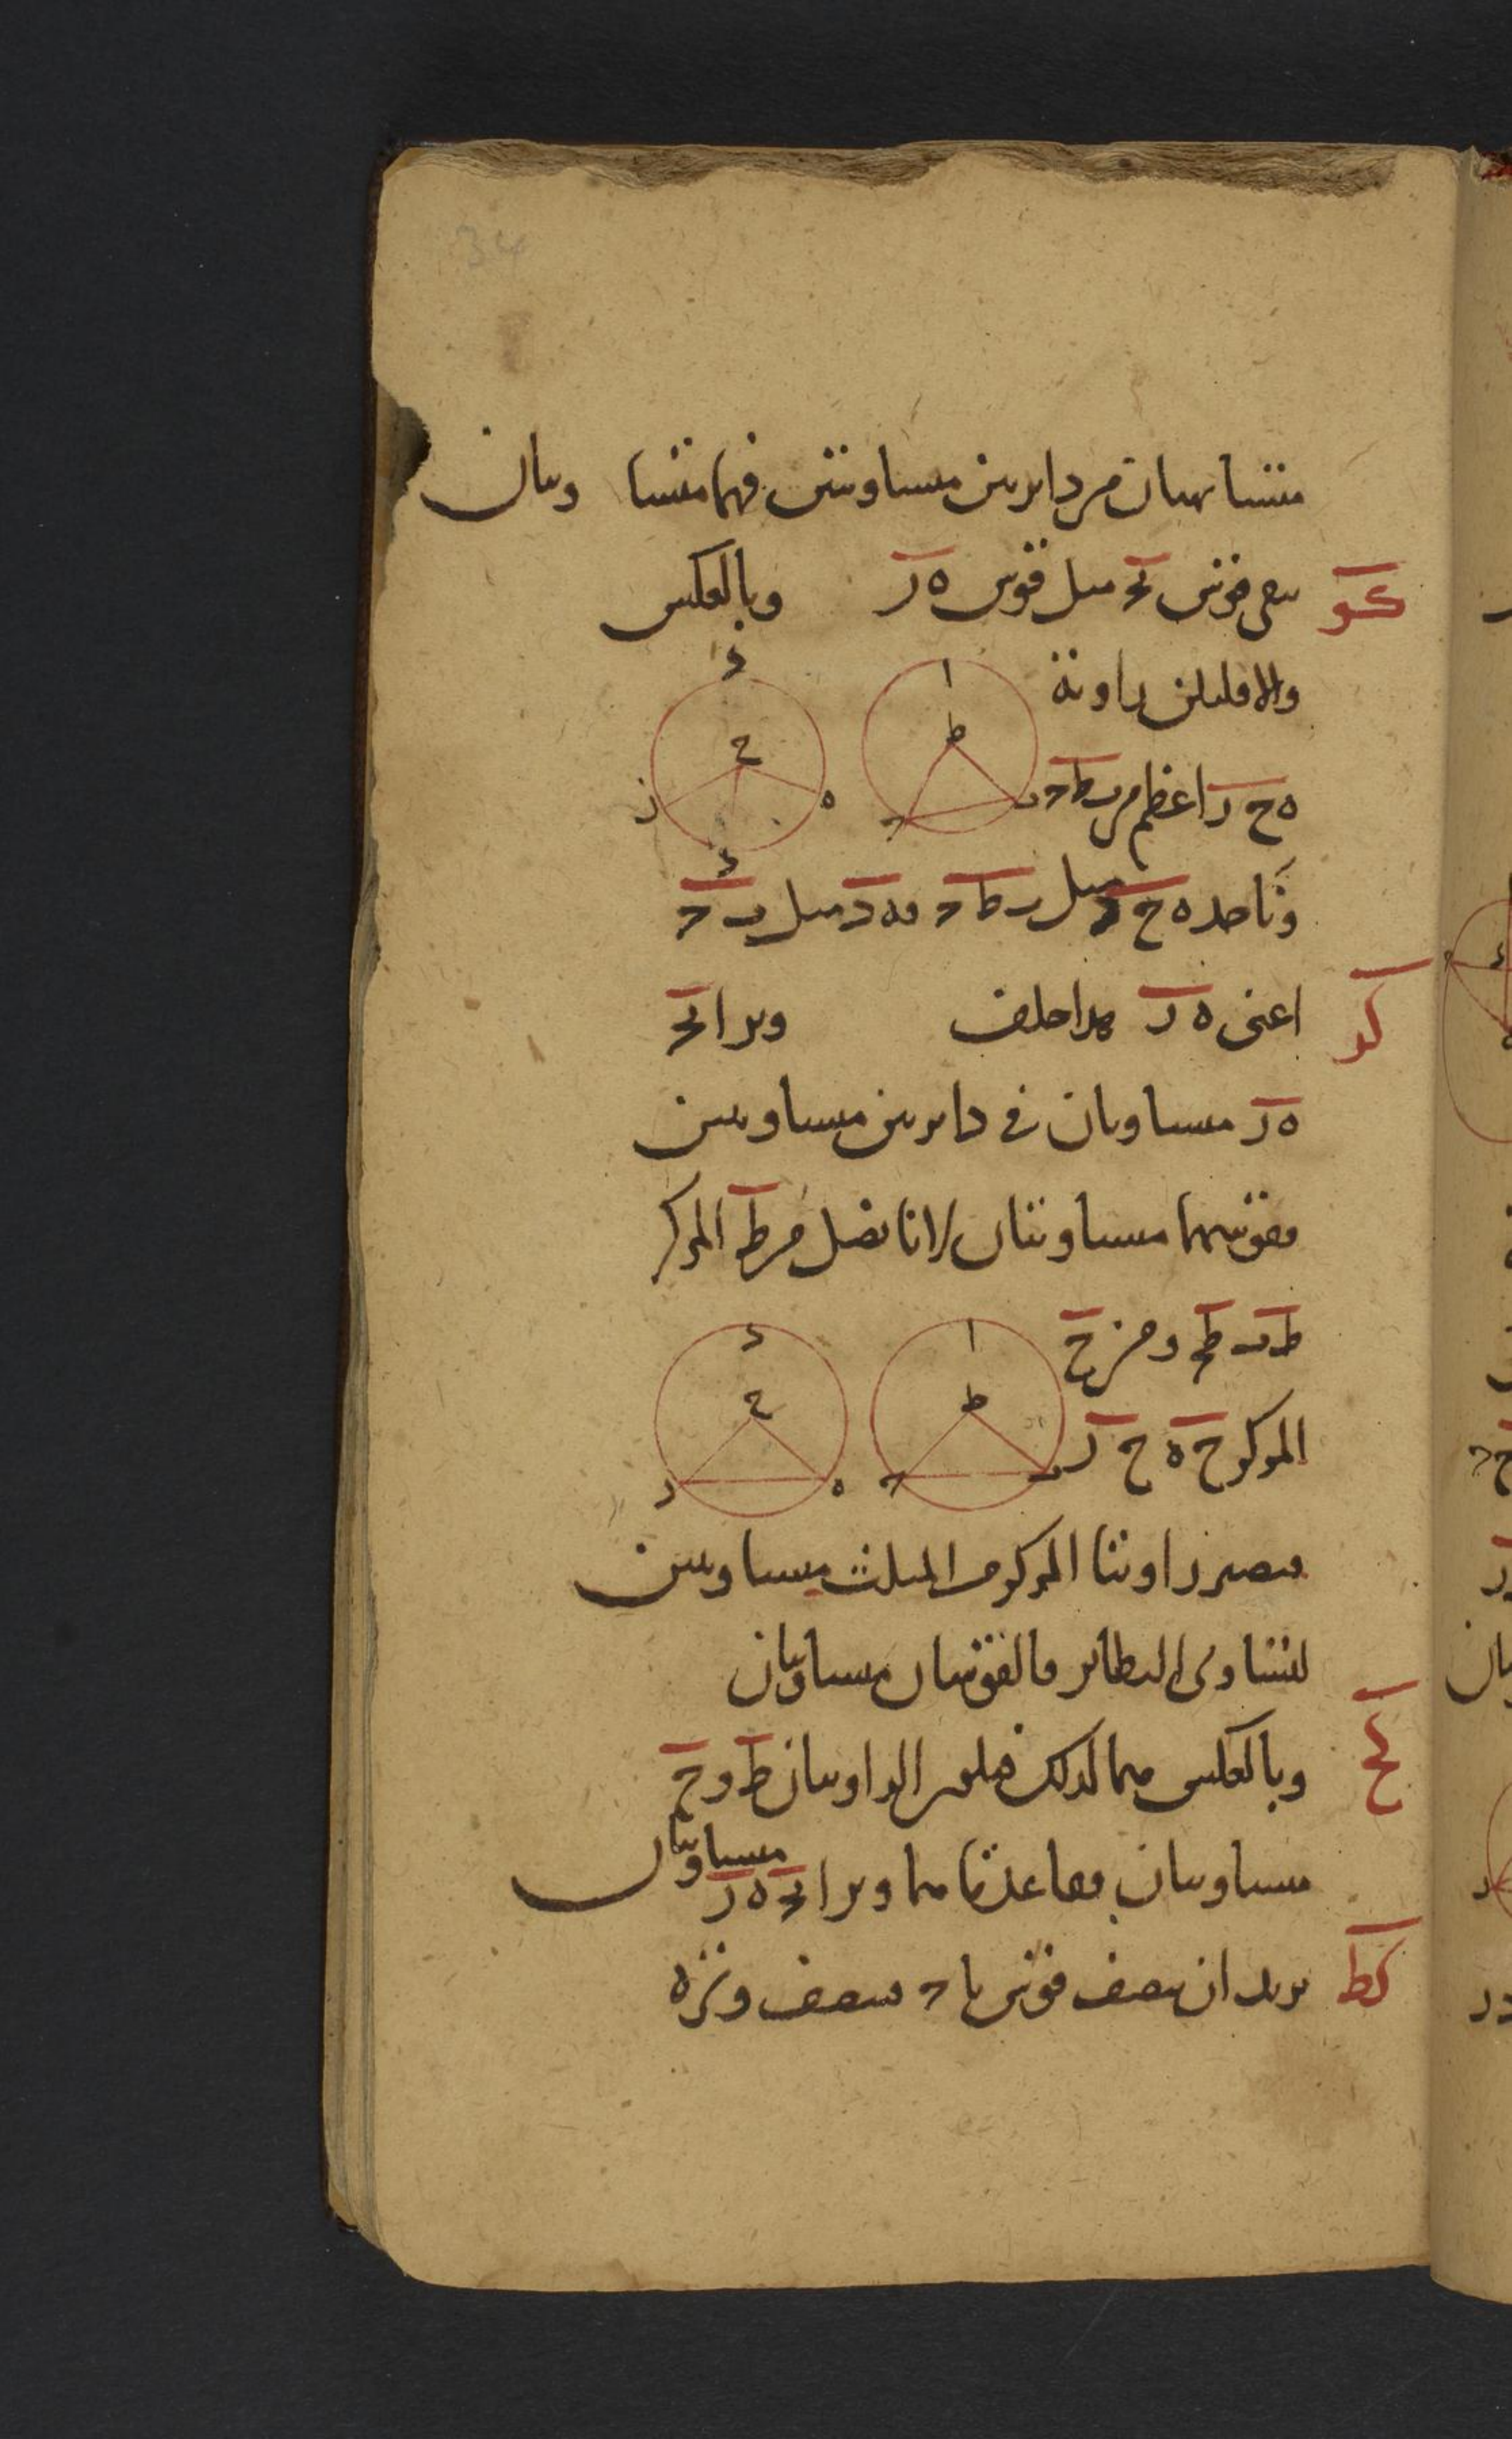 34
متشابهتان من دايرتين متساويتين فهما متساويتان
كو
يبقى قوس بح مثل قوس ه ر وبالعكس
والا فليكن زاوية
ه ح ر اعظم من ب ط ح
ا ط ب ح
د ح ه ز ك
وناخذ ه ح ك مثل ب ط ح فه ك مثل ب ح
كز
اعنى ه ر هذا خلف وترا بح
ه ر متساويان في دايرتين متساويتين
فقوسهما متساويتان لانا نصل من ط المركز
ط ب ط ح ومن ح
المركز ح ه ح ر
ا ط ب ح
د ح ه ر
فتصير زاويتا المركز من المثلث متساويتين
لتساوى النظاير فالقوسان متساويتان
كح
وبالعكس فيهما كذلك فلتكن الزاويتان ط و ح
متساويتان فقاعدتاهما وترا بح ه ر متساويتان
كط
نريد ان ننصف قوس با ح فننصف وتره